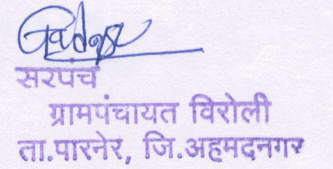 सरपंच
ग्रामपंचायत विरोली
ता.पारनेर, जि.अहमदनगर